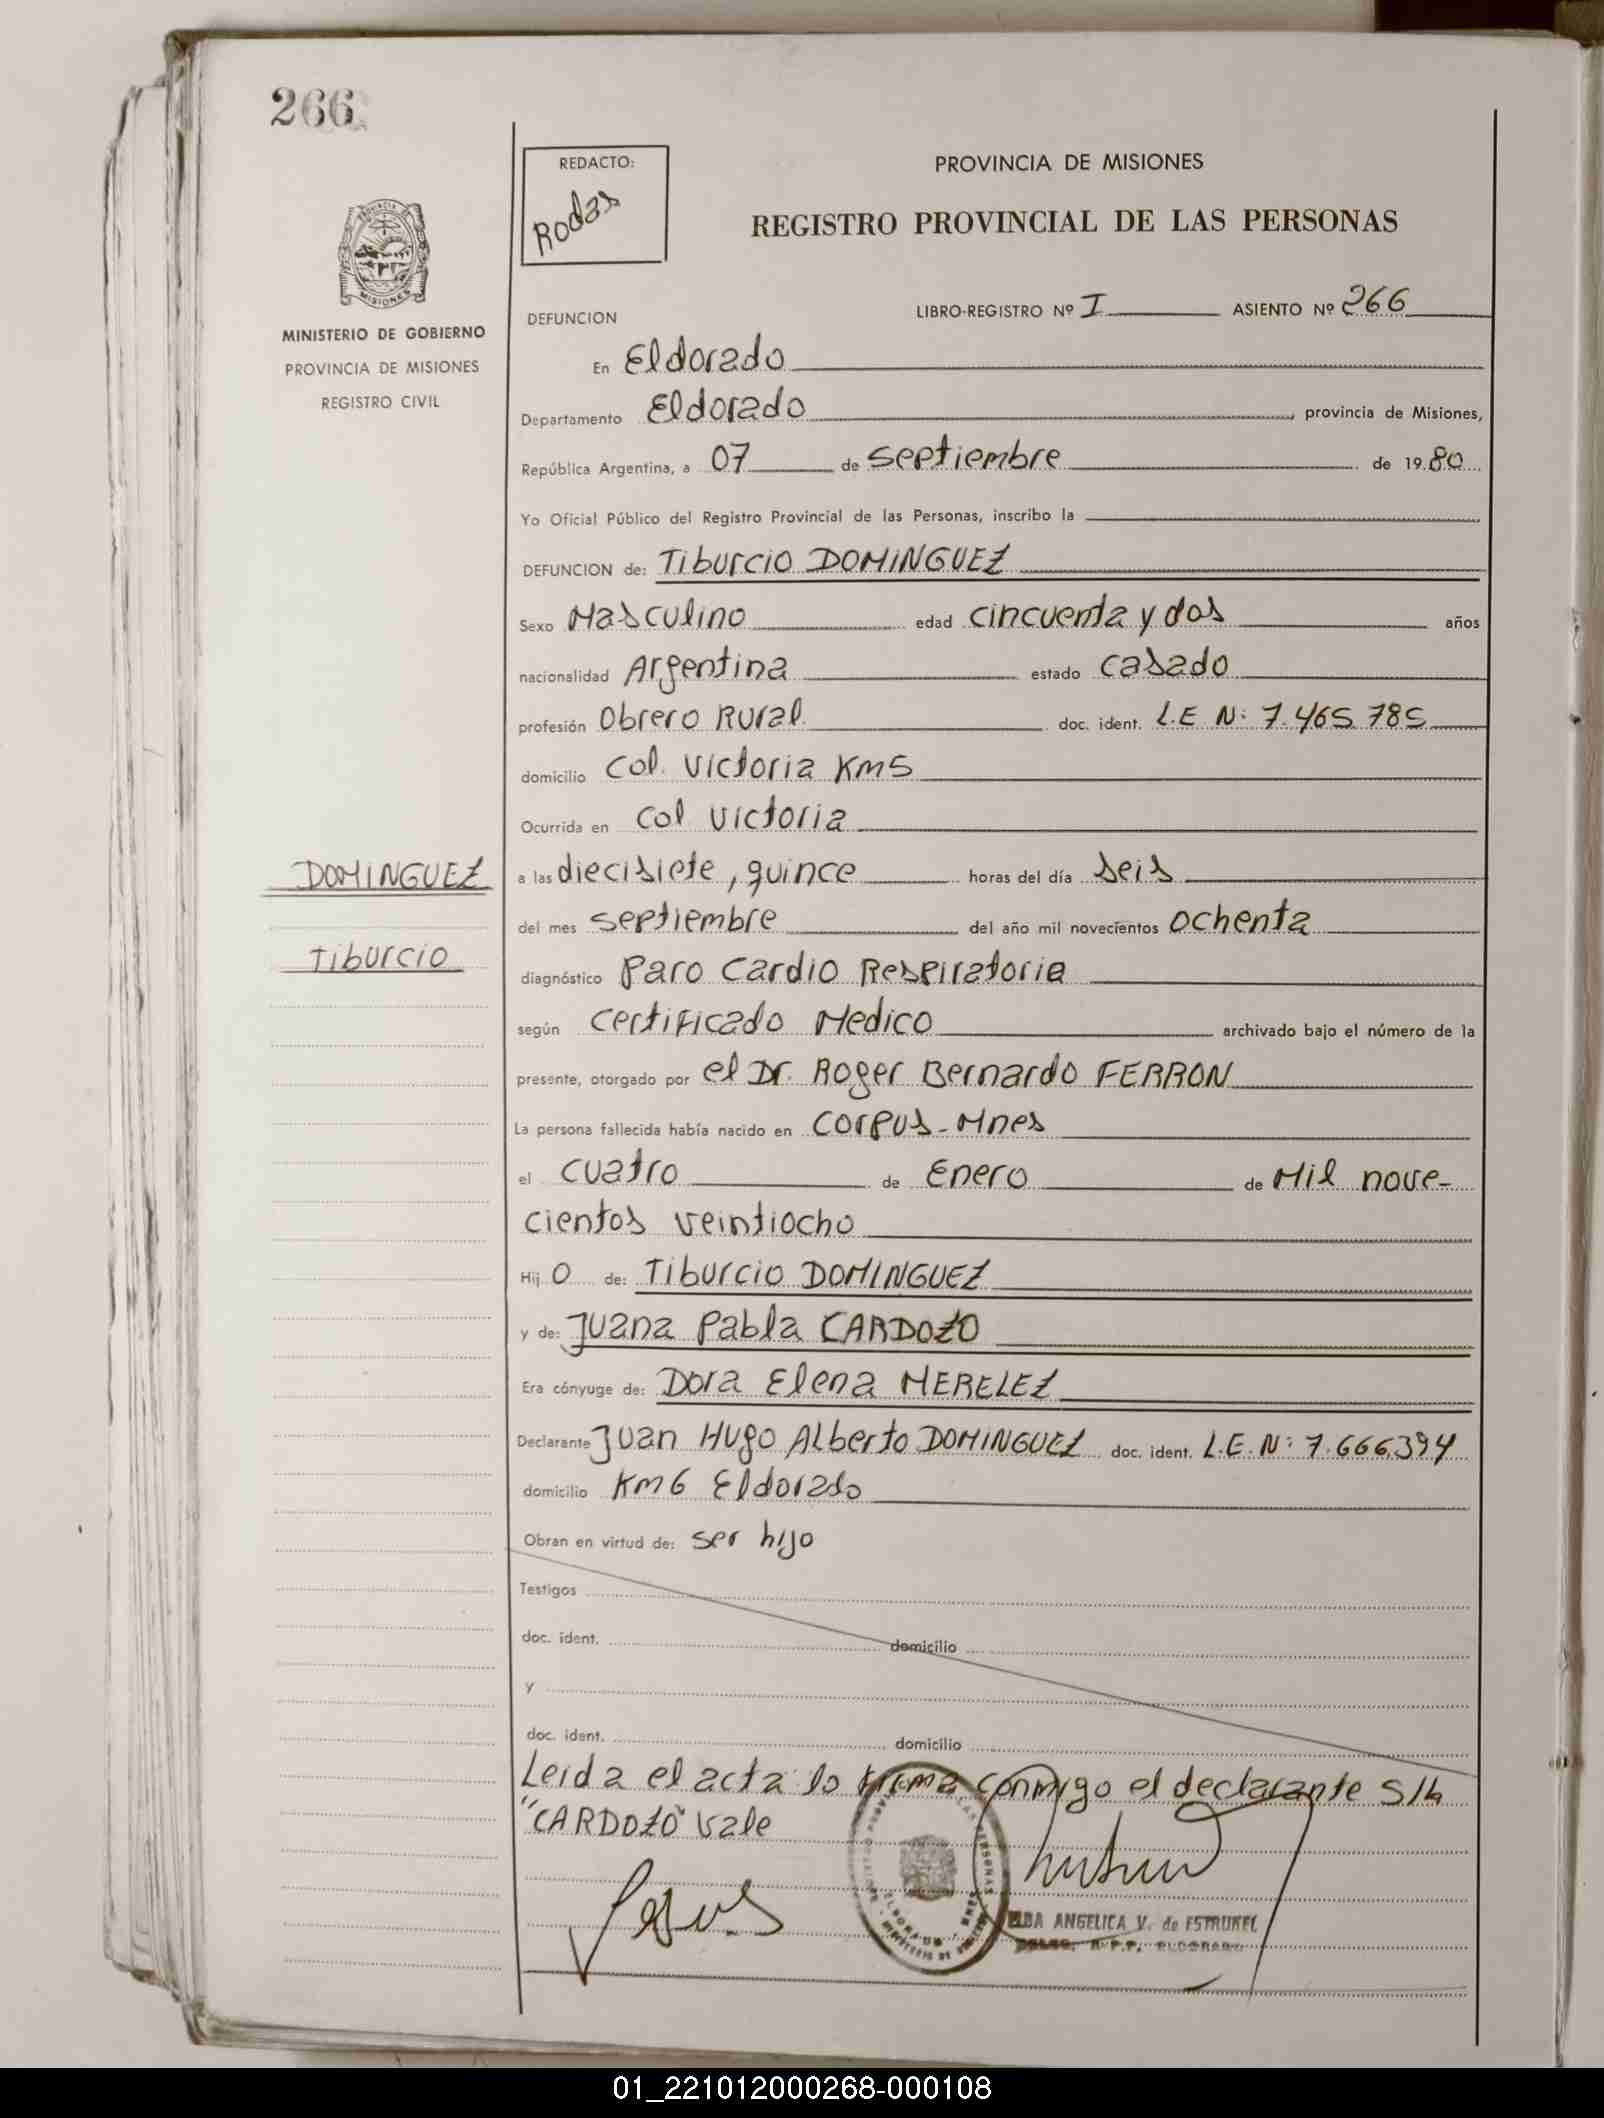 266
REDACTO:
Rodas
PROVINCIA DE MISIONES
REGISTRO PROVINCIAL DE LAS PERSONAS
MISIONES
MINISTERIO DE GOBIERNO
PROVINCIA DE MISIONES
REGISTRO CIVIL
DEFUNCION
LIBRO-REGISTRO Nº I ASIENTO Nº 266
En Eldorado
Departamento Eldorado provincia de Misiones,
República Argentina, a 07 de septiembre de 1980
Yo Oficial Público del Registro Provincial de las Personas, inscribo la
DEFUNCION de: Tiburcio DOMINGUEZ
Sexo Masculino edad cincuenta y dos años
nacionalidad Argentina estado casado
profesión Obrero Rural doc. ident. L.E N: 7.465.785
domicilio Col. Victoria Km5
Ocurrida en Col Victoria
DOMINGUEZ
a las diecisiete, quince horas del día seis
del mes septiembre del año mil novecientos ochenta
Tiburcio
diagnóstico Paro Cardio Respiratoria
según Certificado Medico archivado bajo el número de la
presente, otorgado por el Dr. Roger Bernardo FERRON
La persona fallecida había nacido en Corpus-Mnes
el cuatro de Enero de Mil nove-
cientos veintiocho
Hij o de: Tiburcio DOMINGUEZ
y de: Juana Pabla CARDOZO
Era cónyuge de: Dora Elena MERELEZ
Declarante Juan Hugo Alberto DOMINGUEZ doc. ident. L.E.N: 7.666.394
domicilio Km 6 Eldorado
Obran en virtud de: ser hijo
Testigos
doc. ident. domicilio
y
doc. ident. domicilio
Leida el acta lo firma conmigo el declarante S/h
"CARDOZO" Vale
ELBA ANGELICA V. de ESTRUKEL
DELEG. R.P.P. ELDORADO
01_221012000268-000108